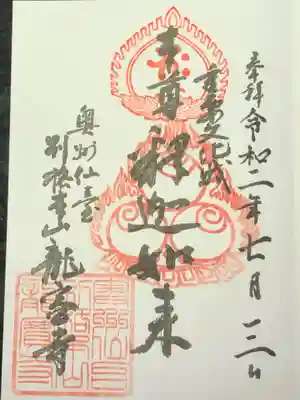 奉拝 令和二年七月三日
重要文化財
本尊 釋迦如来
奥州仙臺
別格本山 龍寳寺